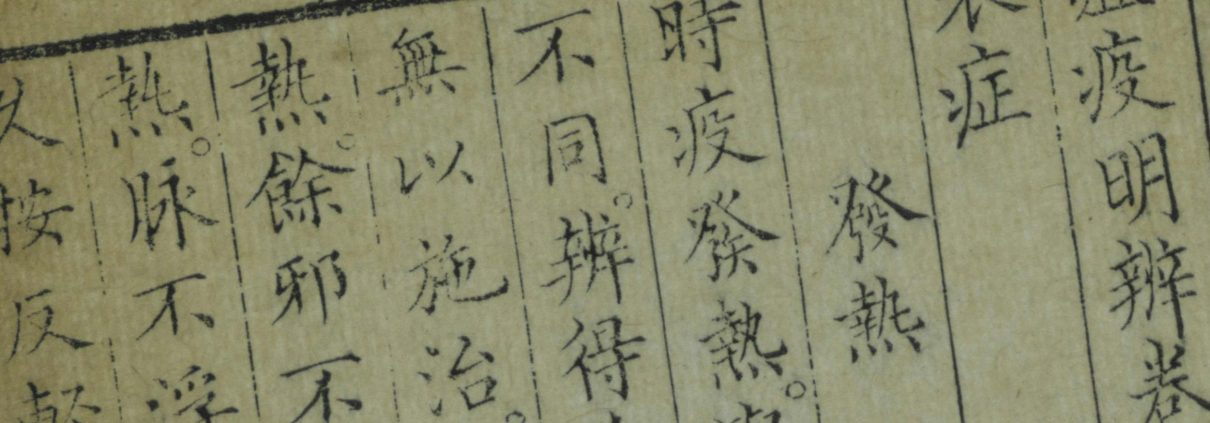 疫明辨卷
症
發熱
時疫發熱。
不同。辨得
無以施治。
熱。餘邪不
熱。脉不浮
久按反輕